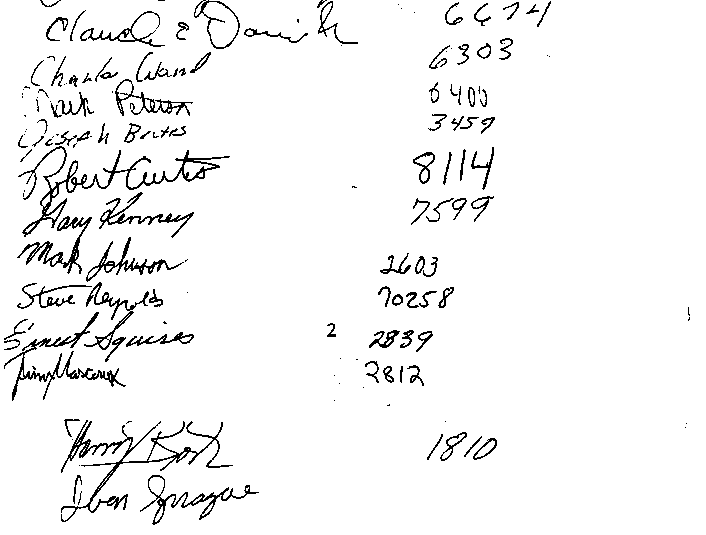 Claude E 6674
Charles Ward 6303
Mark Peterson 6400
Joseph Bates 3459
Robert Curtis 8114
Gary Kenney 7599
Mark Johnson 2603
Steve Reynolds 70258
Ernest Squires 2 2839
2812
1810
Ivan Sprague